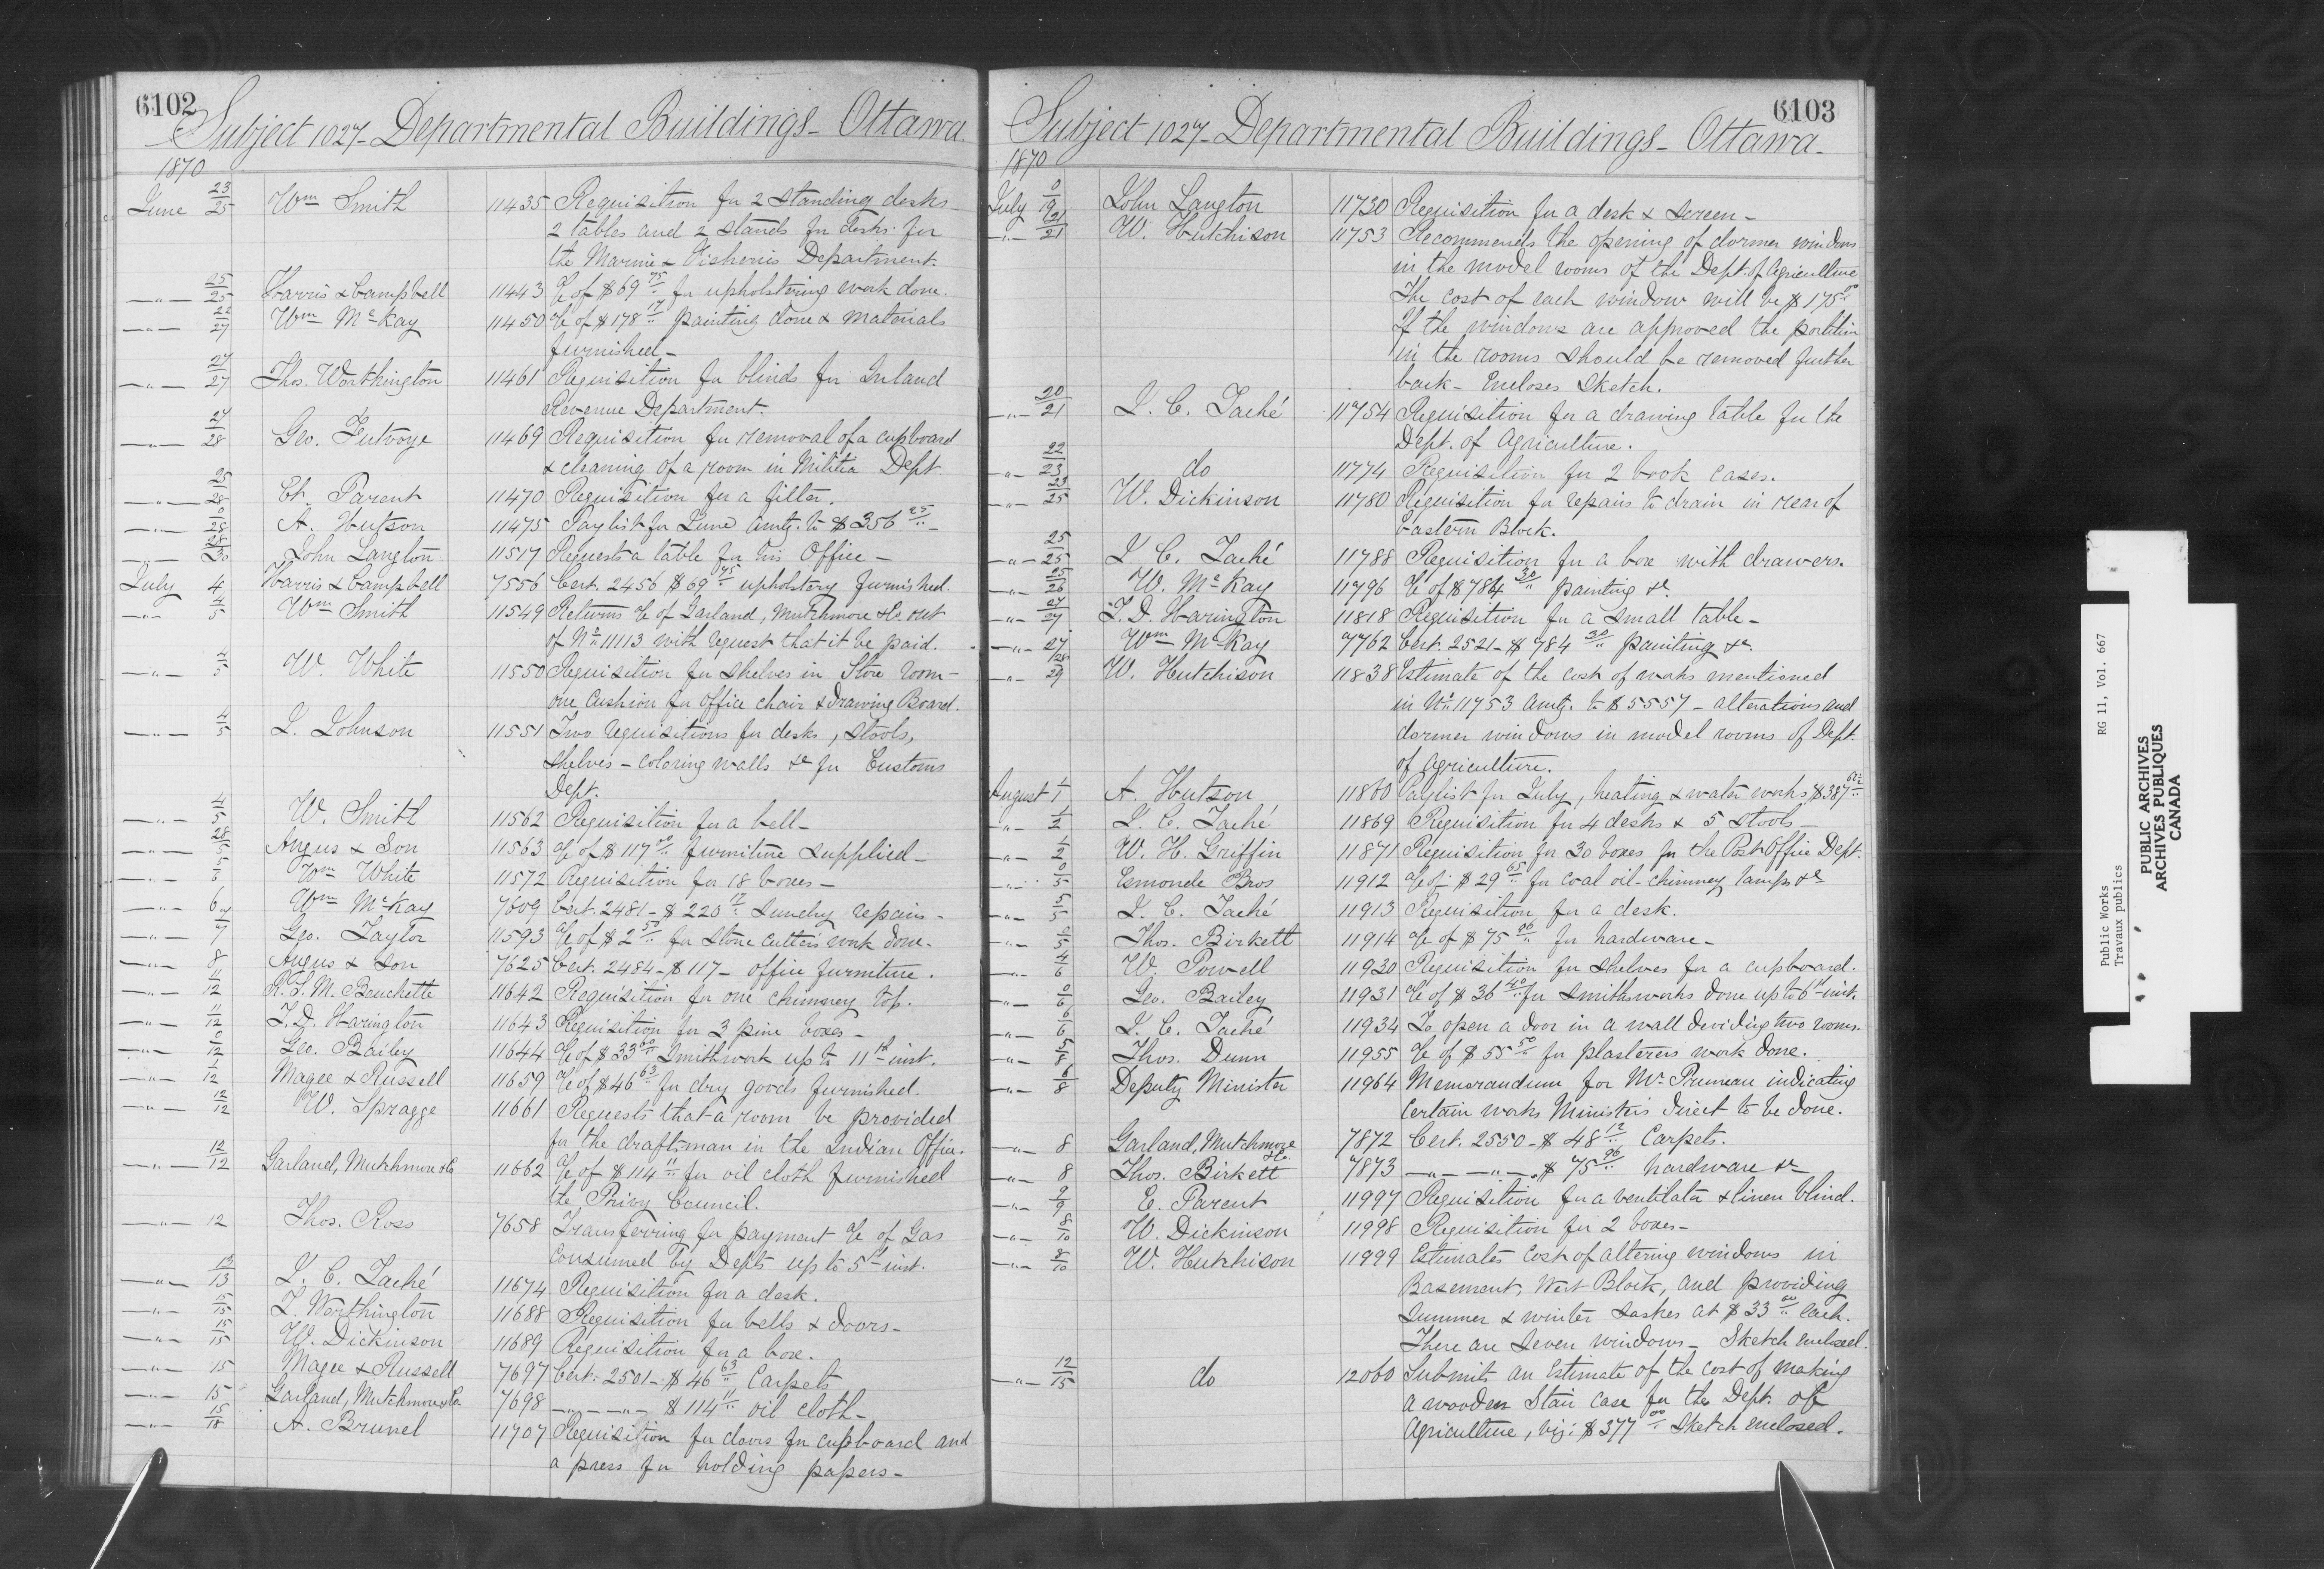 6102
Subject 1027 - Departmental Buildings - Ottawa
1870
June 23/25 Wm Smith 11435 Requisition for 2 standing desks -
2 tables and 2 stands for desks for
the Marine & Fisheries Department.
" 25/25 Harris & Campbell 11443 %c of $69 75/.. for upholstering work done.
" 22/27 Wm McKay 11450 %c of $178 17/.. painting done & materials
furnished -
" 27/27 Thos. Worthington 11461 Requisition for blinds for Inland
Revenue Department.
" 27/28 Geo. Futvoye 11469 Requisition for removal of a cupboard
& cleaning of a room in Militia Dept
" 25/28 Et. Parent 11470 Requisition for a filter.
" 0/28 A. Hutson 11475 Paylist for June amtg. to $356 25/.. -
" 28/30 John Langton 11517 Requests a table for his Office -
July 4 Harris & Campbell 7556 Cert. 2456 $69 75/.. upholstery furnished.
" 4/5 Wm Smith 11549 Returns %c of Garland, Mutchmore & Co out
of No 11113 with request that it be paid.
" 4/5 W. White 11550 Requisition for shelves in Store room -
one cushion for office chair & drawing Board.
" 4/5 J. Johnson 11551 Two requisitions for desks, stools,
shelves - coloring walls &c for Customs
Dept.
" 4/5 W. Smith 11562 Requisition for a bell -
" 28/5 Angus & Son 11563 %c of $117 00/.. furniture supplied -
" 5/6 Wm White 11572 Requisition for 18 boxes -
" 6 Wm McKay 7609 Cert. 2481 - $220 17/.. Sundry repairs -
" 7/7 Geo. Taylor 11593 %c of $2 50/.. for stone cutters work done.
" 8 Angus & Son 7625 Cert. 2484 - $117 - office furniture.
" 11/12 R. S. M. Bouchette 11642 Requisition for one chimney top.
" 11/12 T. D. Harington 11643 Requisition for 3 pine boxes -
" 0/12 Geo. Bailey 11644 %c of $33 60/.. Smithwork up to 11th inst.
" 1/12 Magee & Russell 11659 %c of $46 63/.. for dry goods furnished.
" 12/12 W. Spragge 11661 Requests that a room be provided
for the draftsman in the Indian Office.
" 12/12 Garland, Mutchmore & Co 11662 %c of $114 11/.. for oil cloth furnished
the Privy Council.
" 12 Thos. Ross 7658 Transferring for payment %c of Gas
consumed by Depts up to 5th inst.
" 13/13 J. C. Taché 11674 Requisition for a desk.
" 15/15 T. Worthington 11688 Requisition for bells & doors -
" 15/15 W. Dickinson 11689 Requisition for a box.
" 15 Magee & Russell 7697 Cert. 2501 - $46 63/.. Carpets
" 15 Garland, Mutchmore & Co 7698 " " $114 11/.. oil cloth -
" 15/18 A. Brunel 11707 Requisition for doors for cupboard and
a press for holding papers -
6103
Subject 1027 - Departmental Buildings - Ottawa -
1870
July 0/19 John Langton 11730 Requisition for a desk & screen -
" 21/21 W. Hutchison 11753 Recommends the opening of dormer windows
in the model rooms of the Dept. of Agriculture
The cost of each window will be $175 00/..
If the windows are approved the partition
in the rooms should be removed further
back - Encloses sketch.
" 20/21 J. C. Taché 11754 Requisition for a drawing table for the
Dept. of Agriculture.
" 22/23 do 11774 Requisition for 2 book cases.
" 23/25 W. Dickinson 11780 Requisition for repairs to drain in rear of
Eastern Block.
" 25/25 J. C. Taché 11788 Requisition for a box with drawers.
" 25/26 W. McKay 11796 %c of $784 30/.. painting &c
" 27/27 T. D. Harington 11818 Requisition for a small table -
" 27 Wm McKay 7762 Cert. 2521 - $784 30/.. painting &c.
" 28/29 W. Hutchison 11838 Estimate of the cost of works mentioned
in No 11753 amtg. to $5557 - alterations and
dormer windows in model rooms of Dept.
of Agriculture.
August 1/1 A. Hutson 11860 Paylist for July, heating & water works $387
" 1/2 J. C. Taché 11869 Requisition for 4 desks & 5 stools -
" 1/2 W. H. Griffin 11871 Requisition for 30 boxes for the Post Office Dept.
" 0/5 Esmonde Bros 11912 %c of $29 65/.. for coal oil - chimney lamps &c
" 5/5 J. C. Taché 11913 Requisition for a desk.
" 0/5 Thos. Birkett 11914 %c of $75 96/.. for hardware -
" 4/6 W. Powell 11930 Requisition for shelves for a cupboard.
" 0/6 Geo. Bailey 11931 %c of $36 40/.. for smithsworks done up to 6th inst.
" 6/6 J. C. Taché 11934 To open a door in a wall deviding two rooms.
" 5/8 Thos. Dunn 11955 %c of $55 50/.. for plasterers work done.
" 6/8 Deputy Minister 11964 Memorandum for Mr Pruneau indicating
certain works Ministers direct to be done.
" 8 Garland, Mutchmore & Co. 7872 Cert. 2550 - $48 12/.. Carpets.
" 8 Thos. Birkett 7873 " " $75 96/.. hardware &c
" 9/9 E. Parent 11997 Requisition for a ventilator & linen blind.
" 8/10 W. Dickinson 11998 Requisition for 2 boxes -
" 8/10 W. Hutchison 11999 Estimates cost of altering windows in
Basement, West Block, and providing
summer & winter sashes at $33 00/.. each.
There are seven windows - Sketch enclosed.
" 12/15 do 12060 Submits an Estimate of the cost of making
a wooden Stair case for the Dept. of
Agriculture, viz: $377 00/.. Sketch enclosed.
Public Works RG 11, Vol. 667
Travaux publics
PUBLIC ARCHIVES
ARCHIVES PUBLIQUES
CANADA